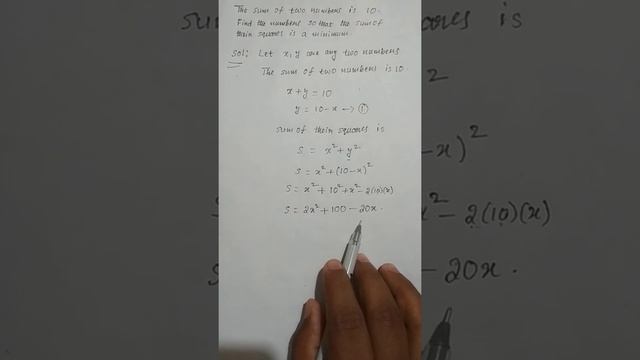 The sum of two numbers is 10.
Find the numbers so that the sum of
their squares is a minimum
Sol: Let x, y are any two numbers
The sum of two numbers is 10
x + y = 10
y = 10 - x → ①
sum of their squares is
S = x² + y²
S = x² + (10 - x)²
S = x² + 10² + x² - 2(10)(x)
S = 2x² + 100 - 20x.